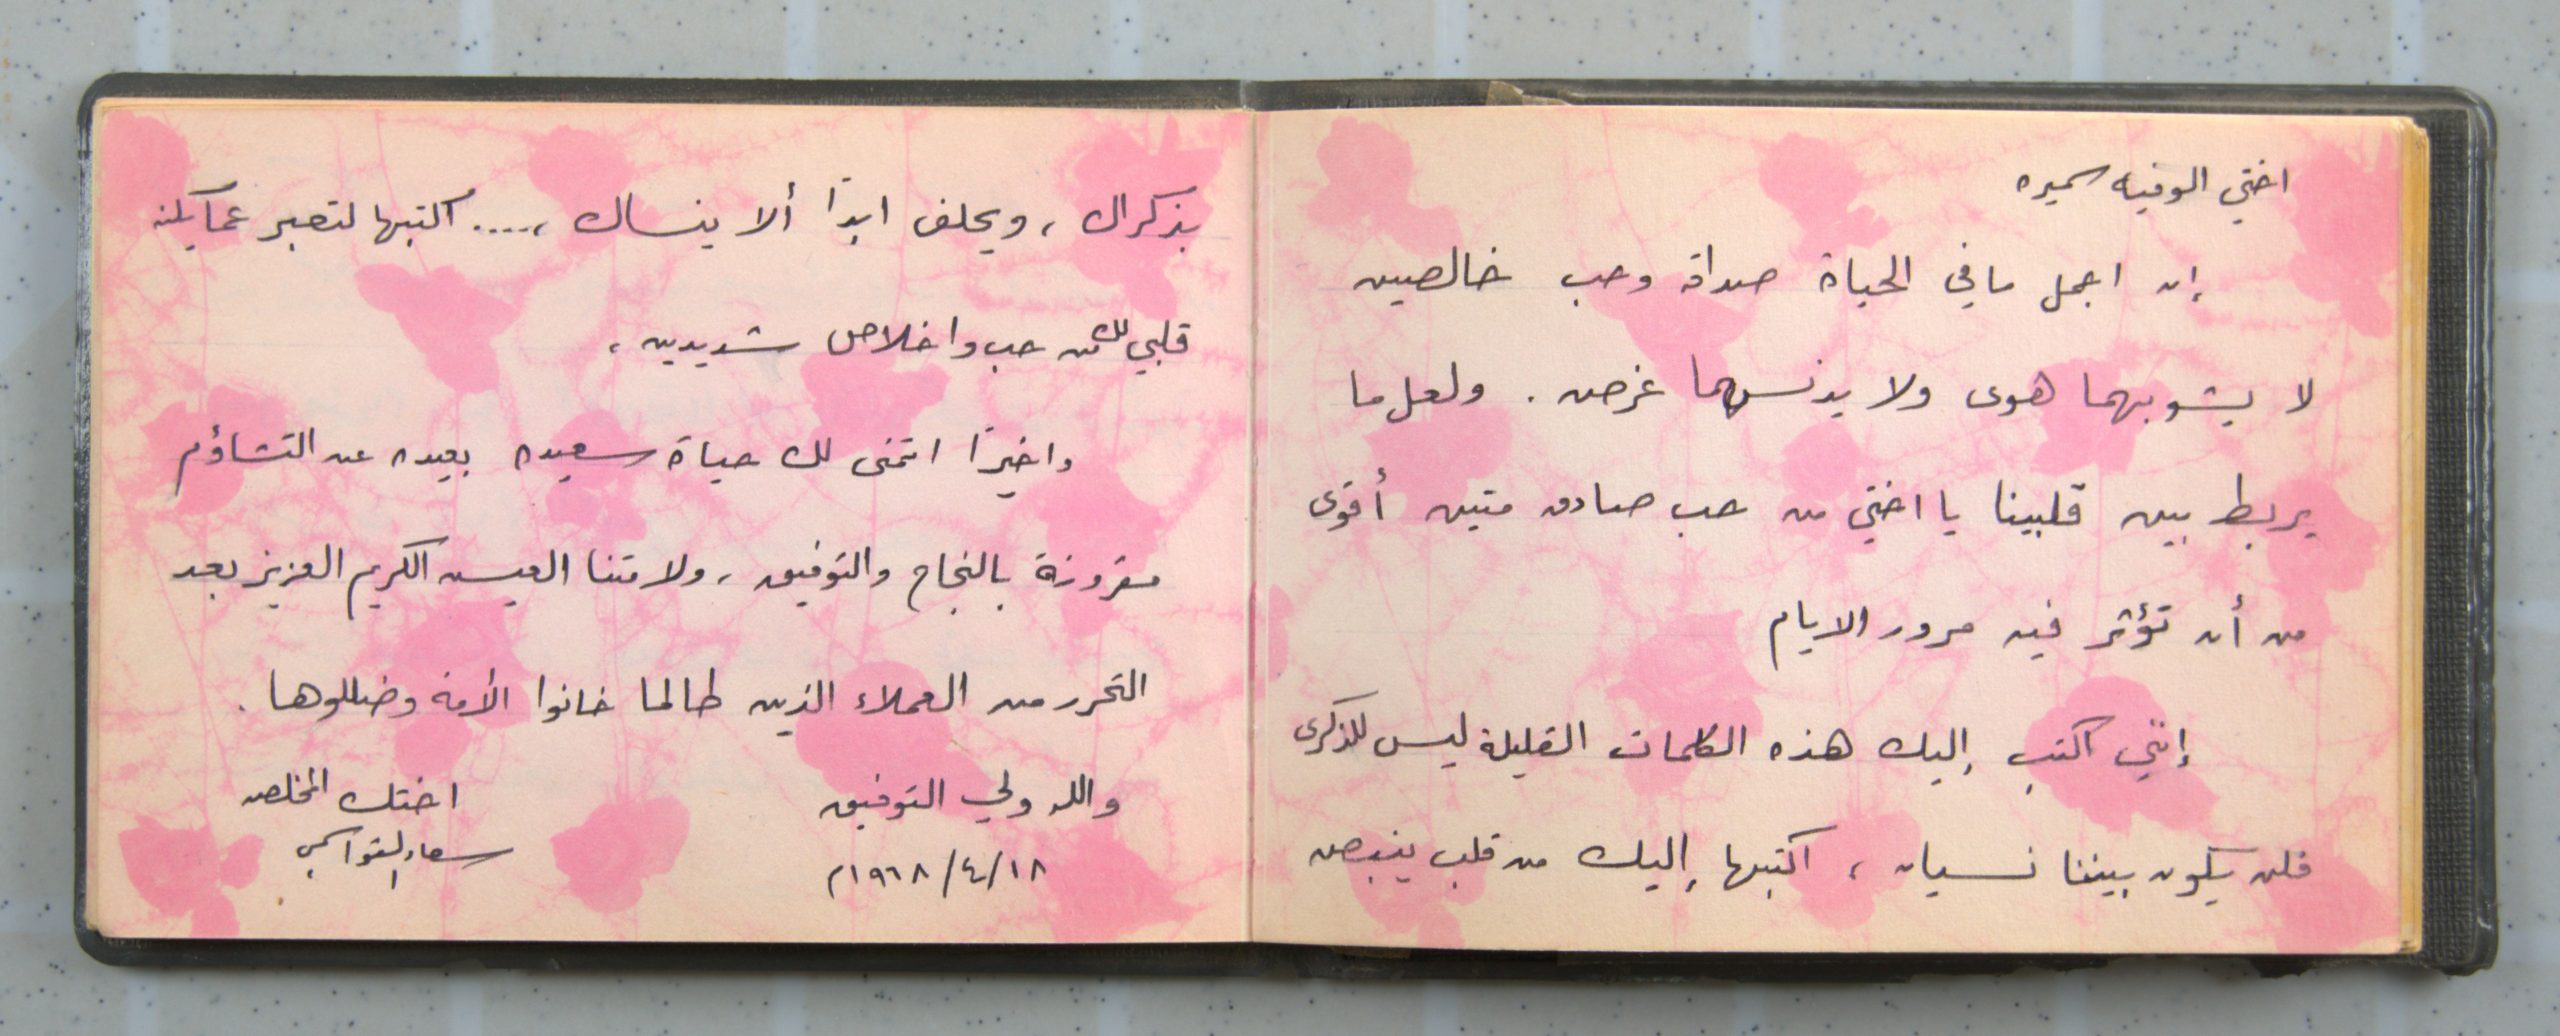 اختي الوفيه سميره
إن اجمل ما في الحياة صداقة وحب خالصين
لا يشوبهما هوى ولا يدنسهما غرض . ولعل ما
يربط بين قلبينا يا اختي من حب صادق متين أقوى
من أن تؤثر فيه مرور الايام
إنني اكتب إليك هذه الكلمات القليلة ليس للذكرى
فلن يكون بيننا نسيان ، اكتبها إليك من قلب ينبض
بذكراك ، ويحلف ابداً ألا ينساك ،.... اكتبها لتعبر عما يكنه
قلبي لك من حب واخلاص شديدين ،
واخيراً اتمنى لك حياة سعيده بعيده عن التشاؤم
مقرونة بالنجاح والتوفيق ، ولامتنا العيش الكريم العزيز بعد
التحرر من العملاء الذين طالما خانوا الأمة وضللوها .
والله ولي التوفيق
١٨/٤/١٩٦٨م
اختك المخلصه
سعاد القواسمي